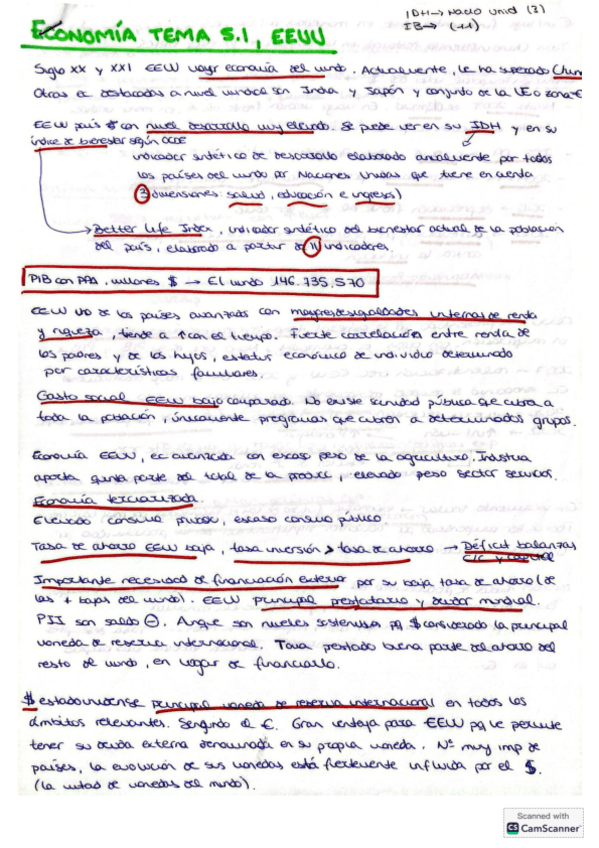 IDH → Nacio Unid (3)
IB → (11)
ECONOMÍA TEMA 5.1, EEUU
Siglo XX y XXI EEUU mayr economía del mundo. Actualmente, le ha superado China
Otras ec destacadas a nivel mundial son India y Japón y conjunto de la UE o zona €
EEUU país $ con nivel desarrollo muy elevado. Se puede ver en su IDH y en su
índice de bienestar según OCDE
indicador sintético de desarrollo elaborado anualmente por todos
los países del mundo por Naciones Unidas que tiene en cuenta
3 dimensiones: salud, educación e ingresos)
→ Better Life Index, indicador sintético del bienestar actual de la población
del país, elaborado a partir de 11 indicadores.
PIB con PPA, millones $ → El mundo 146.735.570
EEUU uno de los países avanzados con mayores desigualdades internas de renta
y riqueza, tiende a ↑ con el tiempo. Fuerte correlación entre renta de
los padres y de los hijos, estatus económico de individuo determinado
por características familiares.
Gasto social EEUU bajo comparado. No existe sanidad pública que cubra a
toda la población, únicamente programas que cubren a determinados grupos.
Economía EEUU, ec avanzada con escaso peso de la agricultura. Industria
aporta quinta parte del total de la producc, elevado peso sector servicios.
Economía terciarizada.
Elevado consumo privado, escaso consumo público.
Tasa de ahorro EEUU baja, tasa inversión > tasa de ahorro → Déficit balanzas
C/C y capital
Importante necesidad de financiación exterior por su baja tasa de ahorro (de
las + bajas del mundo). EEUU principal prestatario y deudor mundial.
PII son saldo ⊖. Anque son niveles sostenibles pq $ considerado la principal
moneda de reserva internacional. Toma prestado buena parte del ahorro del
resto de mundo, en lugar de financiarlo.
$ estadounidense principal moneda de reserva internacional en todos los
ámbitos relevantes. Segundo el €. Gran ventaja para EEUU pq le permite
tener su deuda externa denominada en su propia moneda. Nº muy imp de
países, la evolución de sus monedas está fuertemente influida por el $.
(la mitad de monedas del mundo).
Scanned with
CS CamScanner